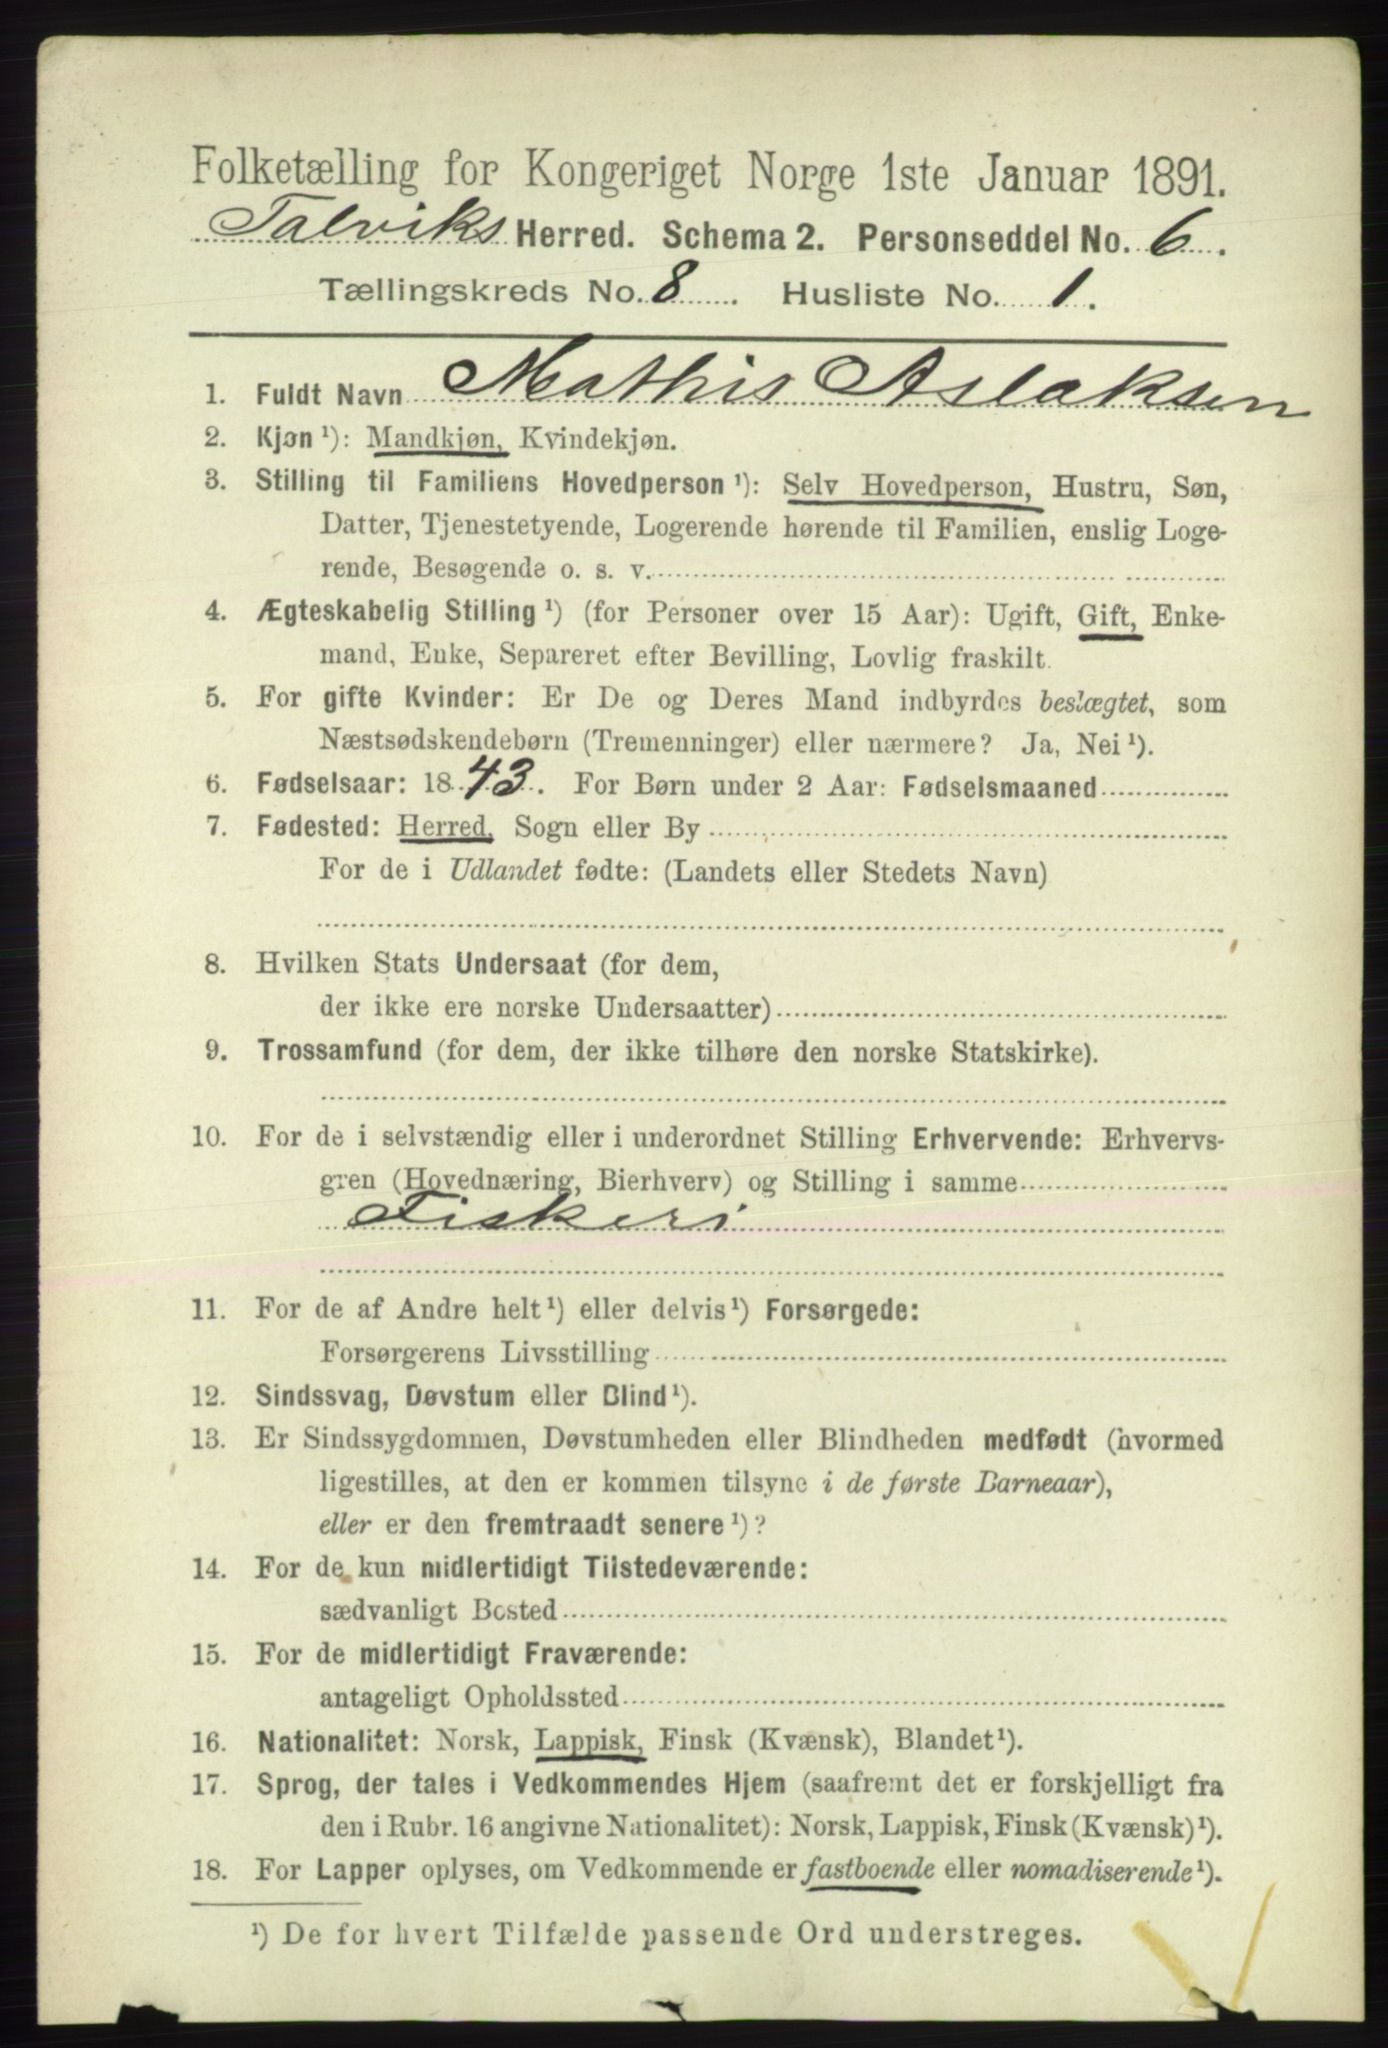 Folketælling for Kongeriget Norge 1ste Januar 1891.
Talviks Herred. Schema 2. Personseddel No. 6.
Tællingskreds No. 8. Husliste No. 1.
1. Fuldt Navn Mathis Aslaksen
2. Kjøn¹): Mandkjøn, Kvindekjøn.
3. Stilling til Familiens Hovedperson¹): Selv Hovedperson, Hustru, Søn,
Datter, Tjenestetyende, Logerende hørende til Familien, enslig Loge-
rende, Besøgende o. s. v.
4. Ægteskabelig Stilling¹) (for Personer over 15 Aar): Ugift, Gift, Enke-
mand, Enke, Separeret efter Bevilling, Lovlig fraskilt.
5. For gifte Kvinder: Er De og Deres Mand indbyrdes beslægtet, som
Næstsødskendebørn (Tremenninger) eller nærmere? Ja, Nei¹).
6. Fødselsaar: 1843. For Børn under 2 Aar: Fødselsmaaned
7. Fødested: Herred, Sogn eller By
For de i Udlandet fødte: (Landets eller Stedets Navn)
8. Hvilken Stats Undersaat (for dem,
der ikke ere norske Undersaatter)
9. Trossamfund (for dem, der ikke tilhøre den norske Statskirke).
10. For de i selvstændig eller i underordnet Stilling Erhvervende: Erhvervs-
gren (Hovednæring, Bierhverv) og Stilling i samme
Fiskeri
11. For de af Andre helt¹) eller delvis¹) Forsørgede:
Forsørgerens Livsstilling
12. Sindssvag, Døvstum eller Blind¹).
13. Er Sindssygdommen, Døvstumheden eller Blindheden medfødt (hvormed
ligestilles, at den er kommen tilsyne i de første Barneaar),
eller er den fremtraadt senere¹)?
14. For de kun midlertidigt Tilstedeværende:
sædvanligt Bosted
15. For de midlertidigt Fraværende:
antageligt Opholdssted
16. Nationalitet: Norsk, Lappisk, Finsk (Kvænsk), Blandet¹).
17. Sprog, der tales i Vedkommendes Hjem (saafremt det er forskjelligt fra
den i Rubr. 16 angivne Nationalitet): Norsk, Lappisk, Finsk (Kvænsk)¹).
18. For Lapper oplyses, om Vedkommende er fastboende eller nomadiserende¹).
¹) De for hvert Tilfælde passende Ord understreges.